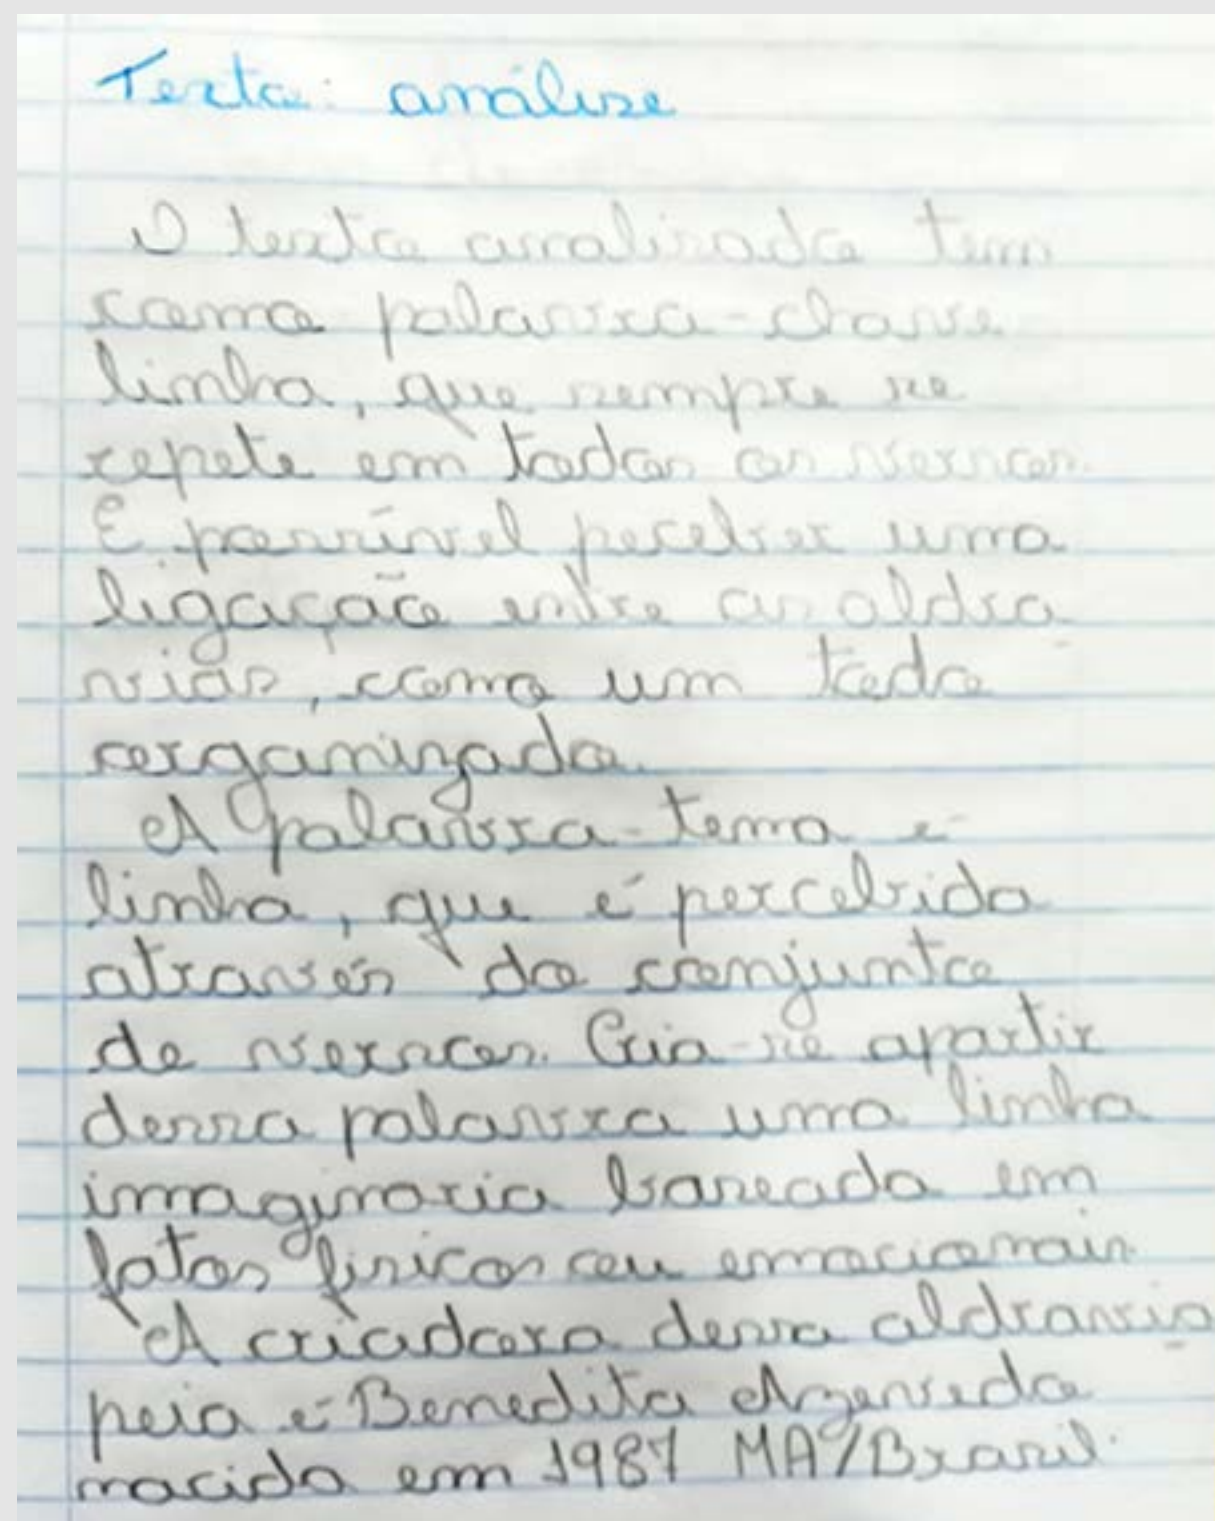 Texto: análise
O texto analisado tem
como palavra-chave
linha, que sempre se
repete em todos os versos.
É possível peceber uma
ligação entre as aldra
vias, como um todo
organizado.
A palavra-tema é
linha, que é percebida
através do conjunto
de versos. Cria-se apartir
dessa palavra uma linha
imaginaria baseada em
fatos fisicos ou emocionais.
A criadora dessa aldravio
peia é Benedita Azevedo
nacida em 1987 MA/Brasil.